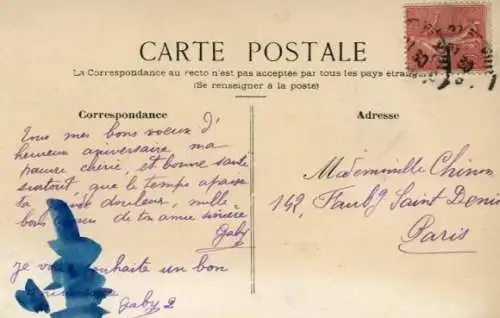 CARTE POSTALE
La Correspondance au recto n'est pas acceptée par tous les pays étran
(Se renseigner à la poste)
Correspondance
Tous mes bons voeux d'
heureux aniversaire ma
pauvre chérie, et bonne santé
surtout, que le temps apaise
ta douleur, mille
bons de ton amie sincère
Gaby
je vous souhaite un bon
Gaby 2
Adresse
Mademoiselle Chinon
149, Faubg Saint Denis
Paris